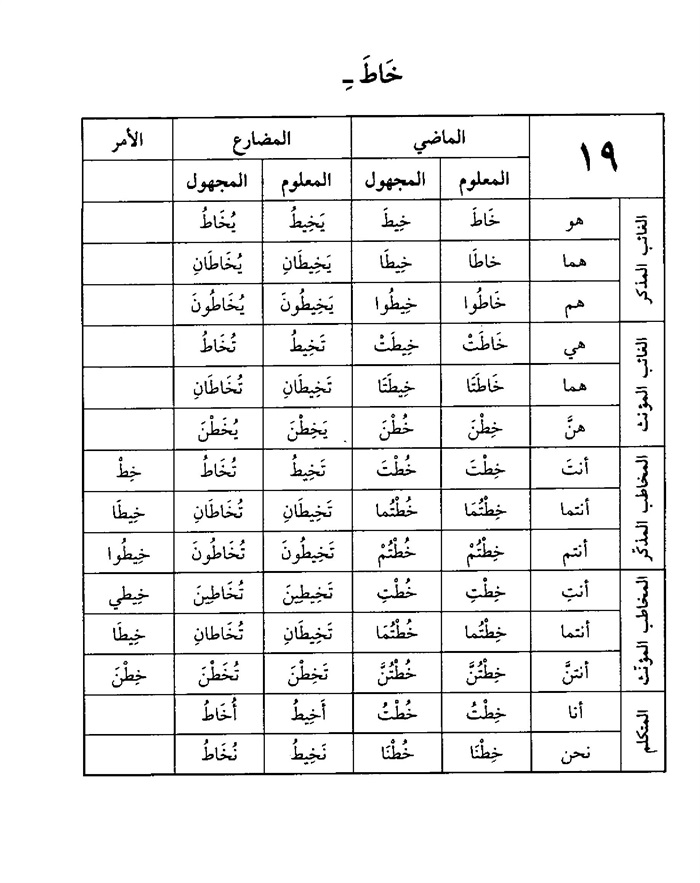 خَاطَ ـِ
١٩ الماضي المضارع الأمر
المعلوم المجهول المعلوم المجهول
الغائب المذكر
هو خَاطَ خِيطَ يَخِيطُ يُخَاطُ
هما خاطَا خِيطَا يَخِيطَانِ يُخَاطَانِ
هم خَاطُوا خِيطُوا يَخِيطُونَ يُخَاطُونَ
الغائب المؤنث
هي خَاطَتْ خِيطَتْ تَخِيطُ تُخَاطُ
هما خَاطَتَا خِيطَتَا تَخِيطَانِ تُخَاطَانِ
هنَّ خِطْنَ خُطْنَ يَخِطْنَ يُخَطْنَ
المخاطب المذكّر
أنتَ خِطْتَ خُطْتَ تَخِيطُ تُخَاطُ خِطْ
أنتما خِطْتُمَا خُطْتُما تَخِيطَانِ تُخَاطَانِ خِيطَا
أنتم خِطْتُمْ خُطْتُمْ تَخِيطُونَ تُخَاطُونَ خِيطُوا
المخاطب المؤنث
أنتِ خِطْتِ خُطْتِ تَخِيطِينَ تُخَاطِينَ خِيطي
أنتما خِطْتُما خُطْتُمَا تَخِيطَانِ تُخَاطانِ خِيطَا
أنتنَّ خِطْتُنَّ خُطْتُنَّ تَخِطْنَ تُخَطْنَ خِطْنَ
المتكلم
أنا خِطْتُ خُطْتُ أَخِيطُ أُخَاطُ
نحن خِطْنَا خُطْنَا نَخِيطُ نُخَاطُ